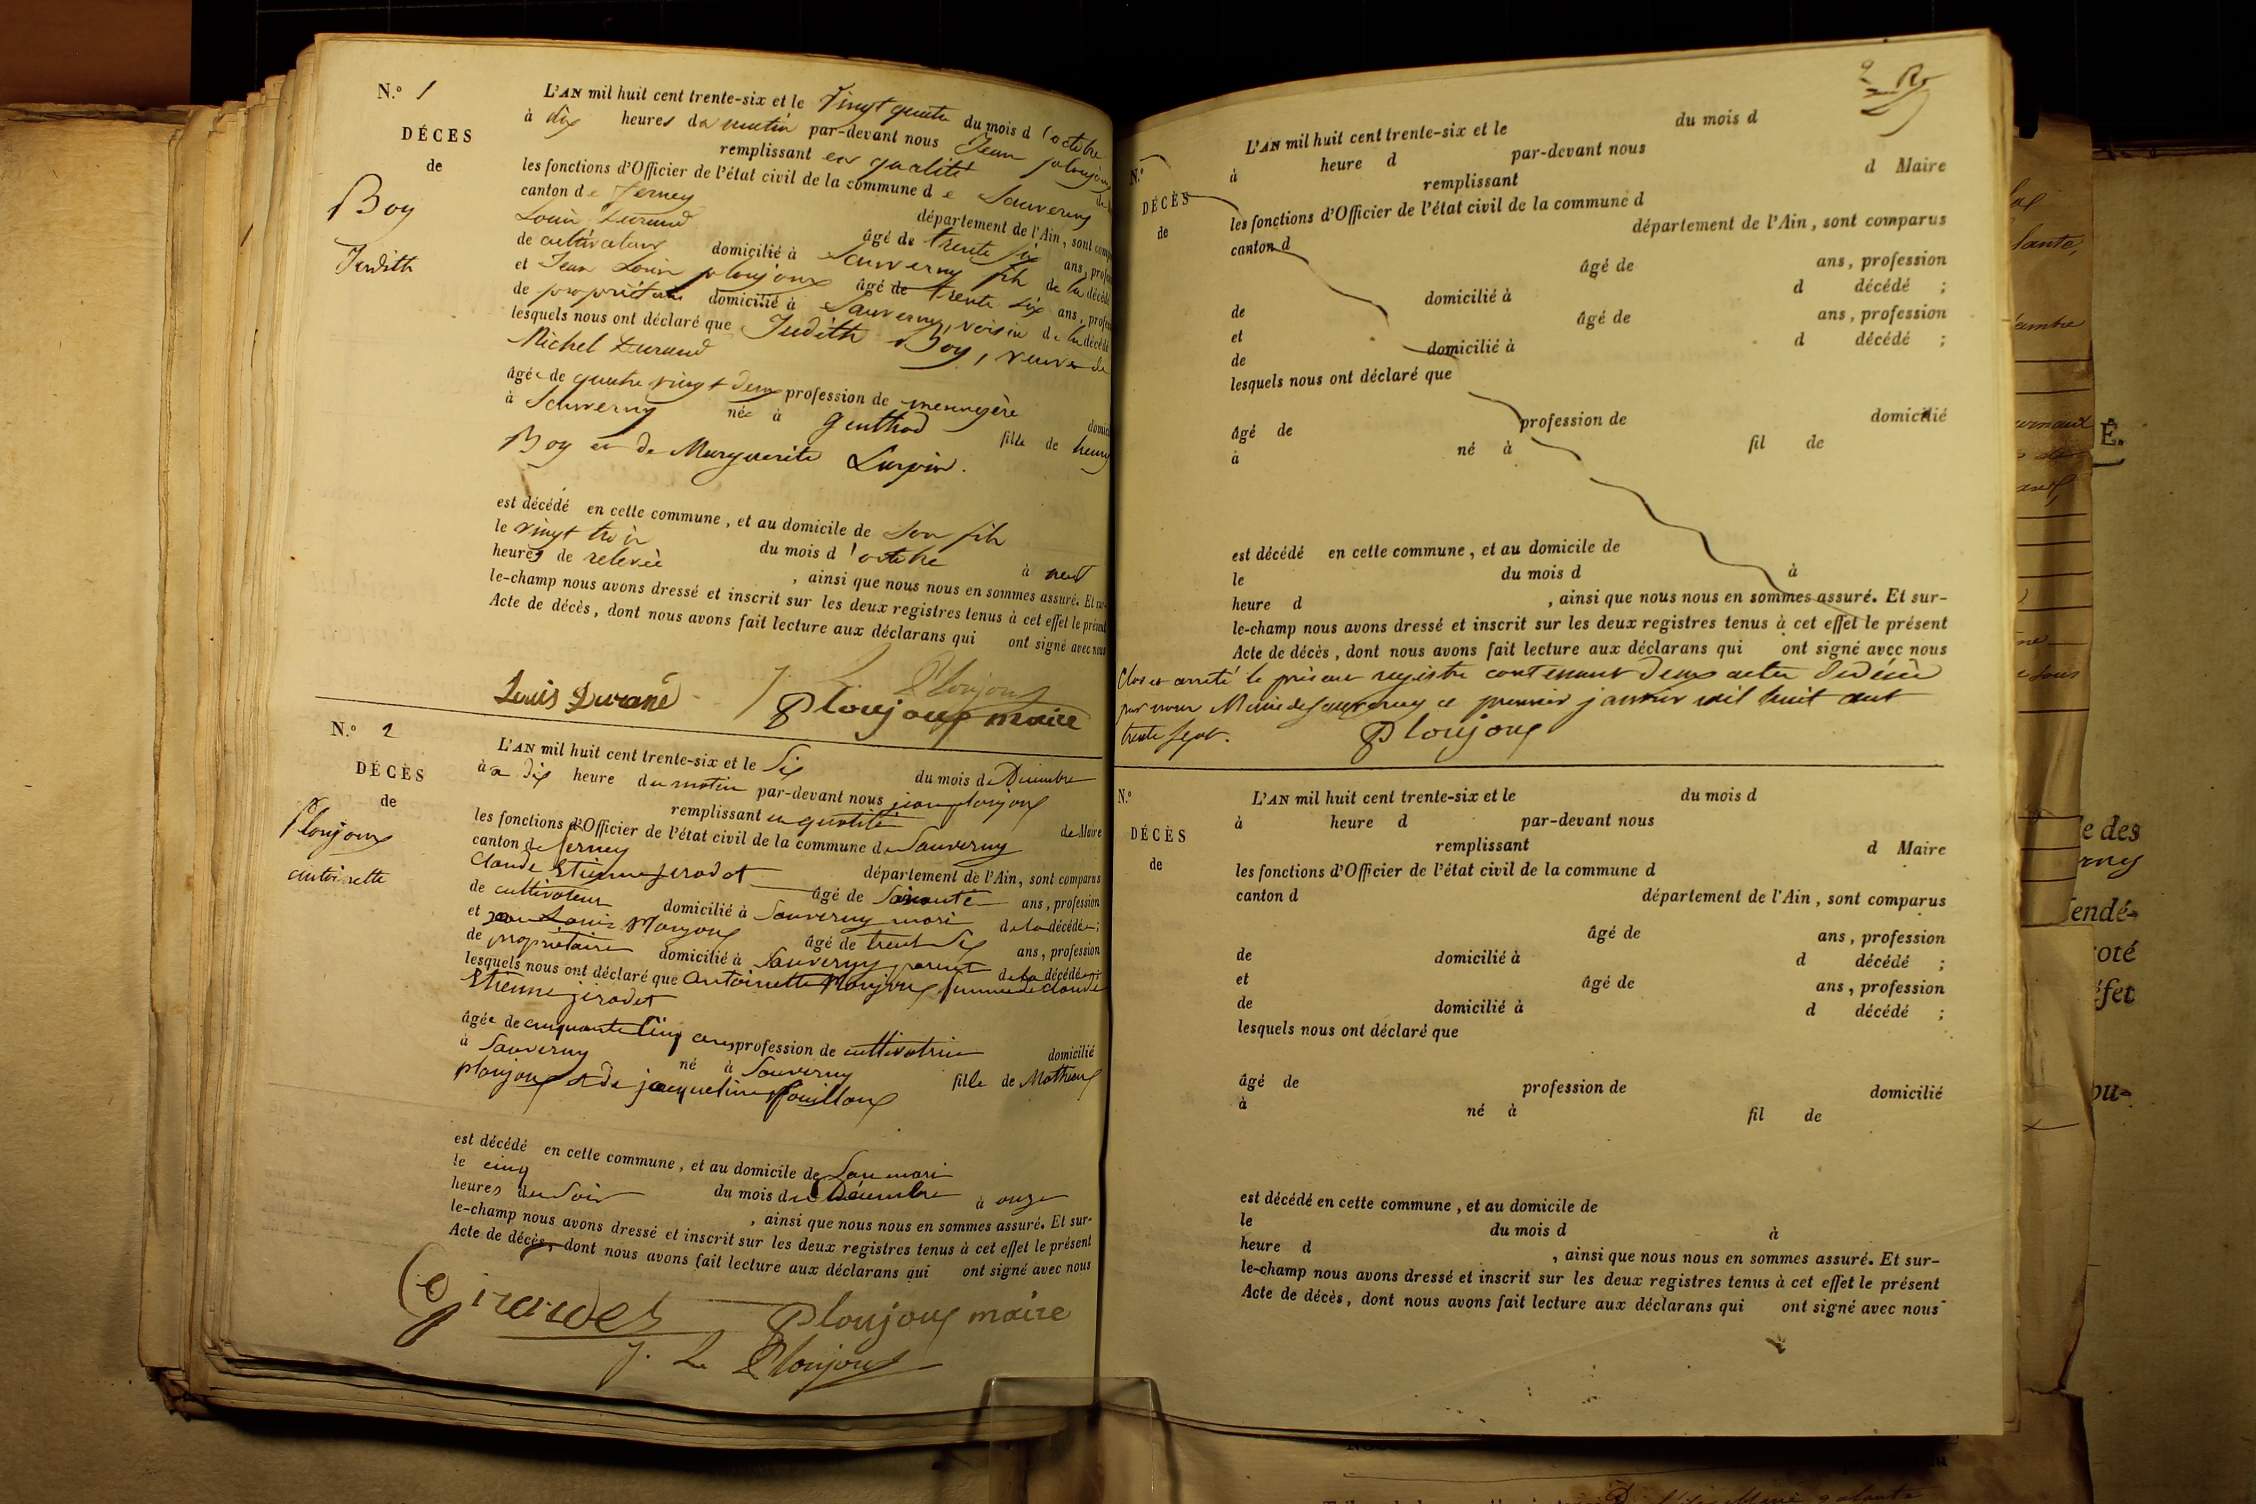 N.o 1
DÉCES
de
Boy
Judith
L'AN mil huit cent trente-six et le Vingt quatre du mois d'octobre
à dix heures du matin par-devant nous Jean ploujoux
remplissant en qualité de
les fonctions d'Officier de l'état civil de la commune de Sauverny
canton de ferney département de l'Ain, sont comp
Louis Durand âgé de trente six ans, profes
de cultivateur domicilié à Sauverny fils de la décédé
et Jean Louis ploujoux âgé de trente six ans, profes
de propriétaire domicilié à Sauverny, voisin de la décédé
lesquels nous ont déclaré que Judith Boy, veuve de
Michel Durand
âgée de quatre vingt deux profession de menagère domici
à Sauverny née à genthod fille de henry
Boy et de Marguerite
est décédé en cette commune, et au domicile de son fils
le vingt trois du mois d'octobre à neuf
heures de relevée , ainsi que nous nous en sommes assuré. Et sur-
le-champ nous avons dressé et inscrit sur les deux registres tenus à cet effet le présent
Acte de décès, dont nous avons fait lecture aux déclarans qui ont signé avec nous
Louis Durand J. L. Ploujoux
Ploujoux maire
N.o 2
DÉCÈS
de
Ploujoux
antoinette
L'AN mil huit cent trente-six et le Six du mois de Décembre
à dix heure du matin par-devant nous jean ploujoux
remplissant en qualité de Maire
les fonctions d'Officier de l'état civil de la commune de Sauverny
canton de ferney département de l'Ain, sont comparus
Claude Etienne jerodet âgé de Soixante ans, profession
de cultivateur domicilié à Sauverny mari de la décédée;
et jean Louis Ploujoux âgé de trente Six ans, profession
de propriétaire domicilié à Sauverny parent de la décédée;
lesquels nous ont déclaré que antoinette Ploujoux femme de Claude
Etienne jirodet
âgée de cinquante cinq ans profession de cultivatrice domicilié
à Sauverny né à Sauverny fille de Mathieu
ploujoux et de jacqueline fouilloux
est décédé en cette commune, et au domicile de Son mari
le cinq du mois de Décembre à onze
heures du Soir , ainsi que nous nous en sommes assuré. Et sur-
le-champ nous avons dressé et inscrit sur les deux registres tenus à cet effet le présent
Acte de décès, dont nous avons fait lecture aux déclarans qui ont signé avec nous
Girardet Ploujoux maire
J. L. Ploujoux
2
N.o
DÉCÈS
de
L'AN mil huit cent trente-six et le du mois d
à heure d par-devant nous
remplissant d Maire
les fonctions d'Officier de l'état civil de la commune d
canton d département de l'Ain, sont comparus
âgé de ans, profession
de domicilié à d décédé ;
et âgé de ans, profession
de domicilié à d décédé ;
lesquels nous ont déclaré que
âgé de profession de domicilié
à né à fil de
est décédé en cette commune, et au domicile de
le du mois d à
heure d , ainsi que nous nous en sommes assuré. Et sur-
le-champ nous avons dressé et inscrit sur les deux registres tenus à cet effet le présent
Acte de décès, dont nous avons fait lecture aux déclarans qui ont signé avec nous
Clos et arreté le présent registre contenant deux actes de décès
par nous Maire de Sauverny ce premier janvier mil huit cent
trente sept. Ploujoux
N.o
DÉCÈS
de
L'AN mil huit cent trente-six et le du mois d
à heure d par-devant nous
remplissant d Maire
les fonctions d'Officier de l'état civil de la commune d
canton d département de l'Ain, sont comparus
âgé de ans, profession
de domicilié à d décédé ;
et âgé de ans, profession
de domicilié à d décédé ;
lesquels nous ont déclaré que
âgé de profession de domicilié
à né à fil de
est décédé en cette commune, et au domicile de
le du mois d à
heure d , ainsi que nous nous en sommes assuré. Et sur-
le-champ nous avons dressé et inscrit sur les deux registres tenus à cet effet le présent
Acte de décès, dont nous avons fait lecture aux déclarans qui ont signé avec nous